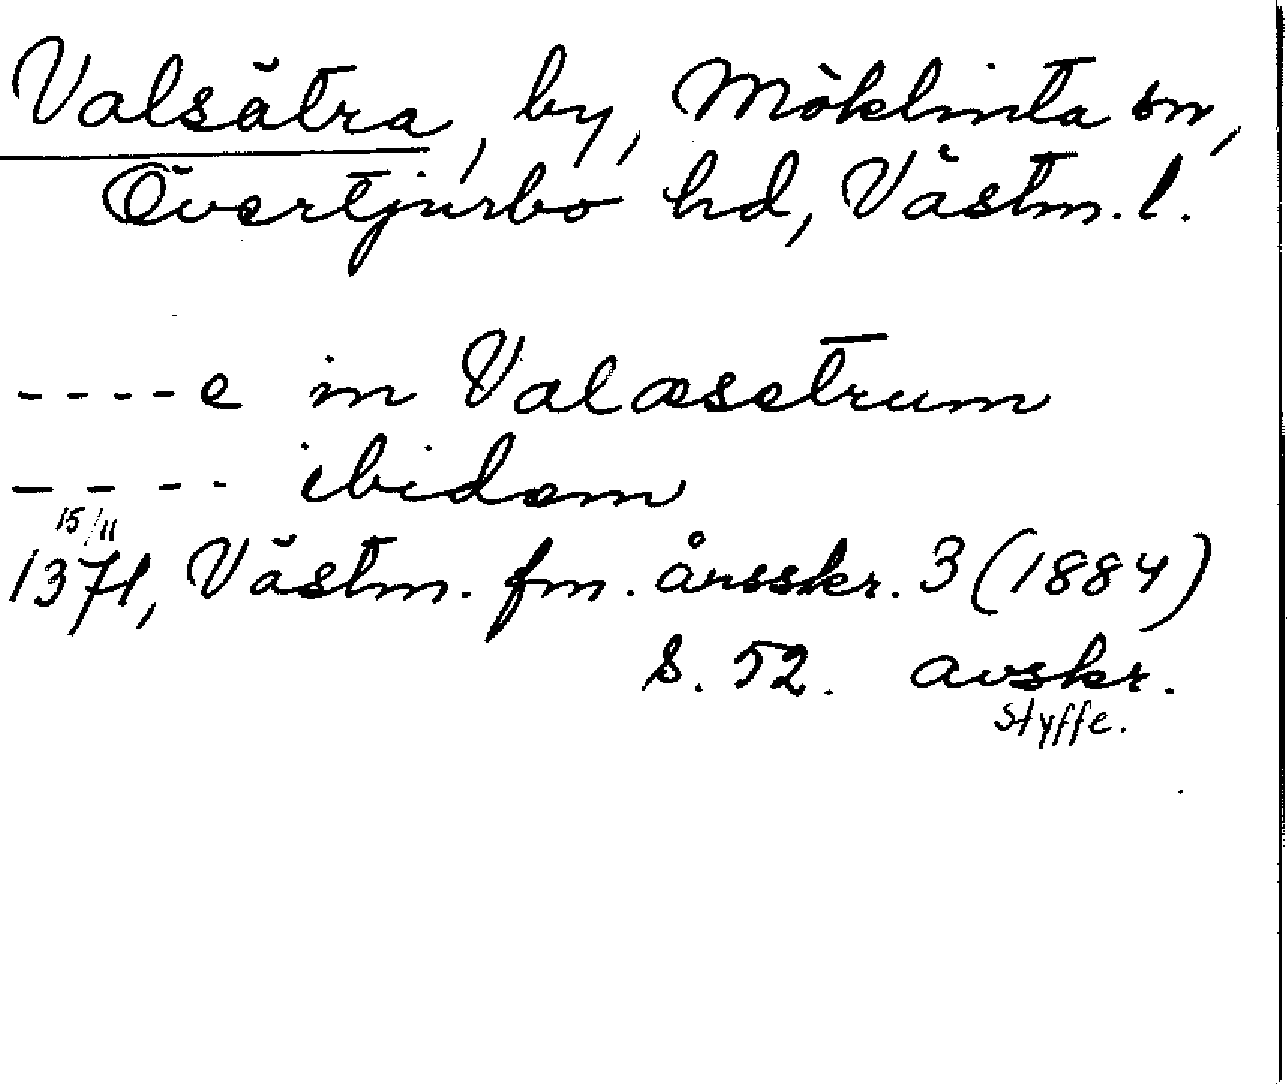 Valsätra, by, Möklinta sn,
Övertjurbo hd, Västm. l.
- - - - e in Valæsetrum
- - - - ibidem
15/11
1371, Västm. fm. årsskr. 3 (1884)
s. 52. avskr.
Styffe.